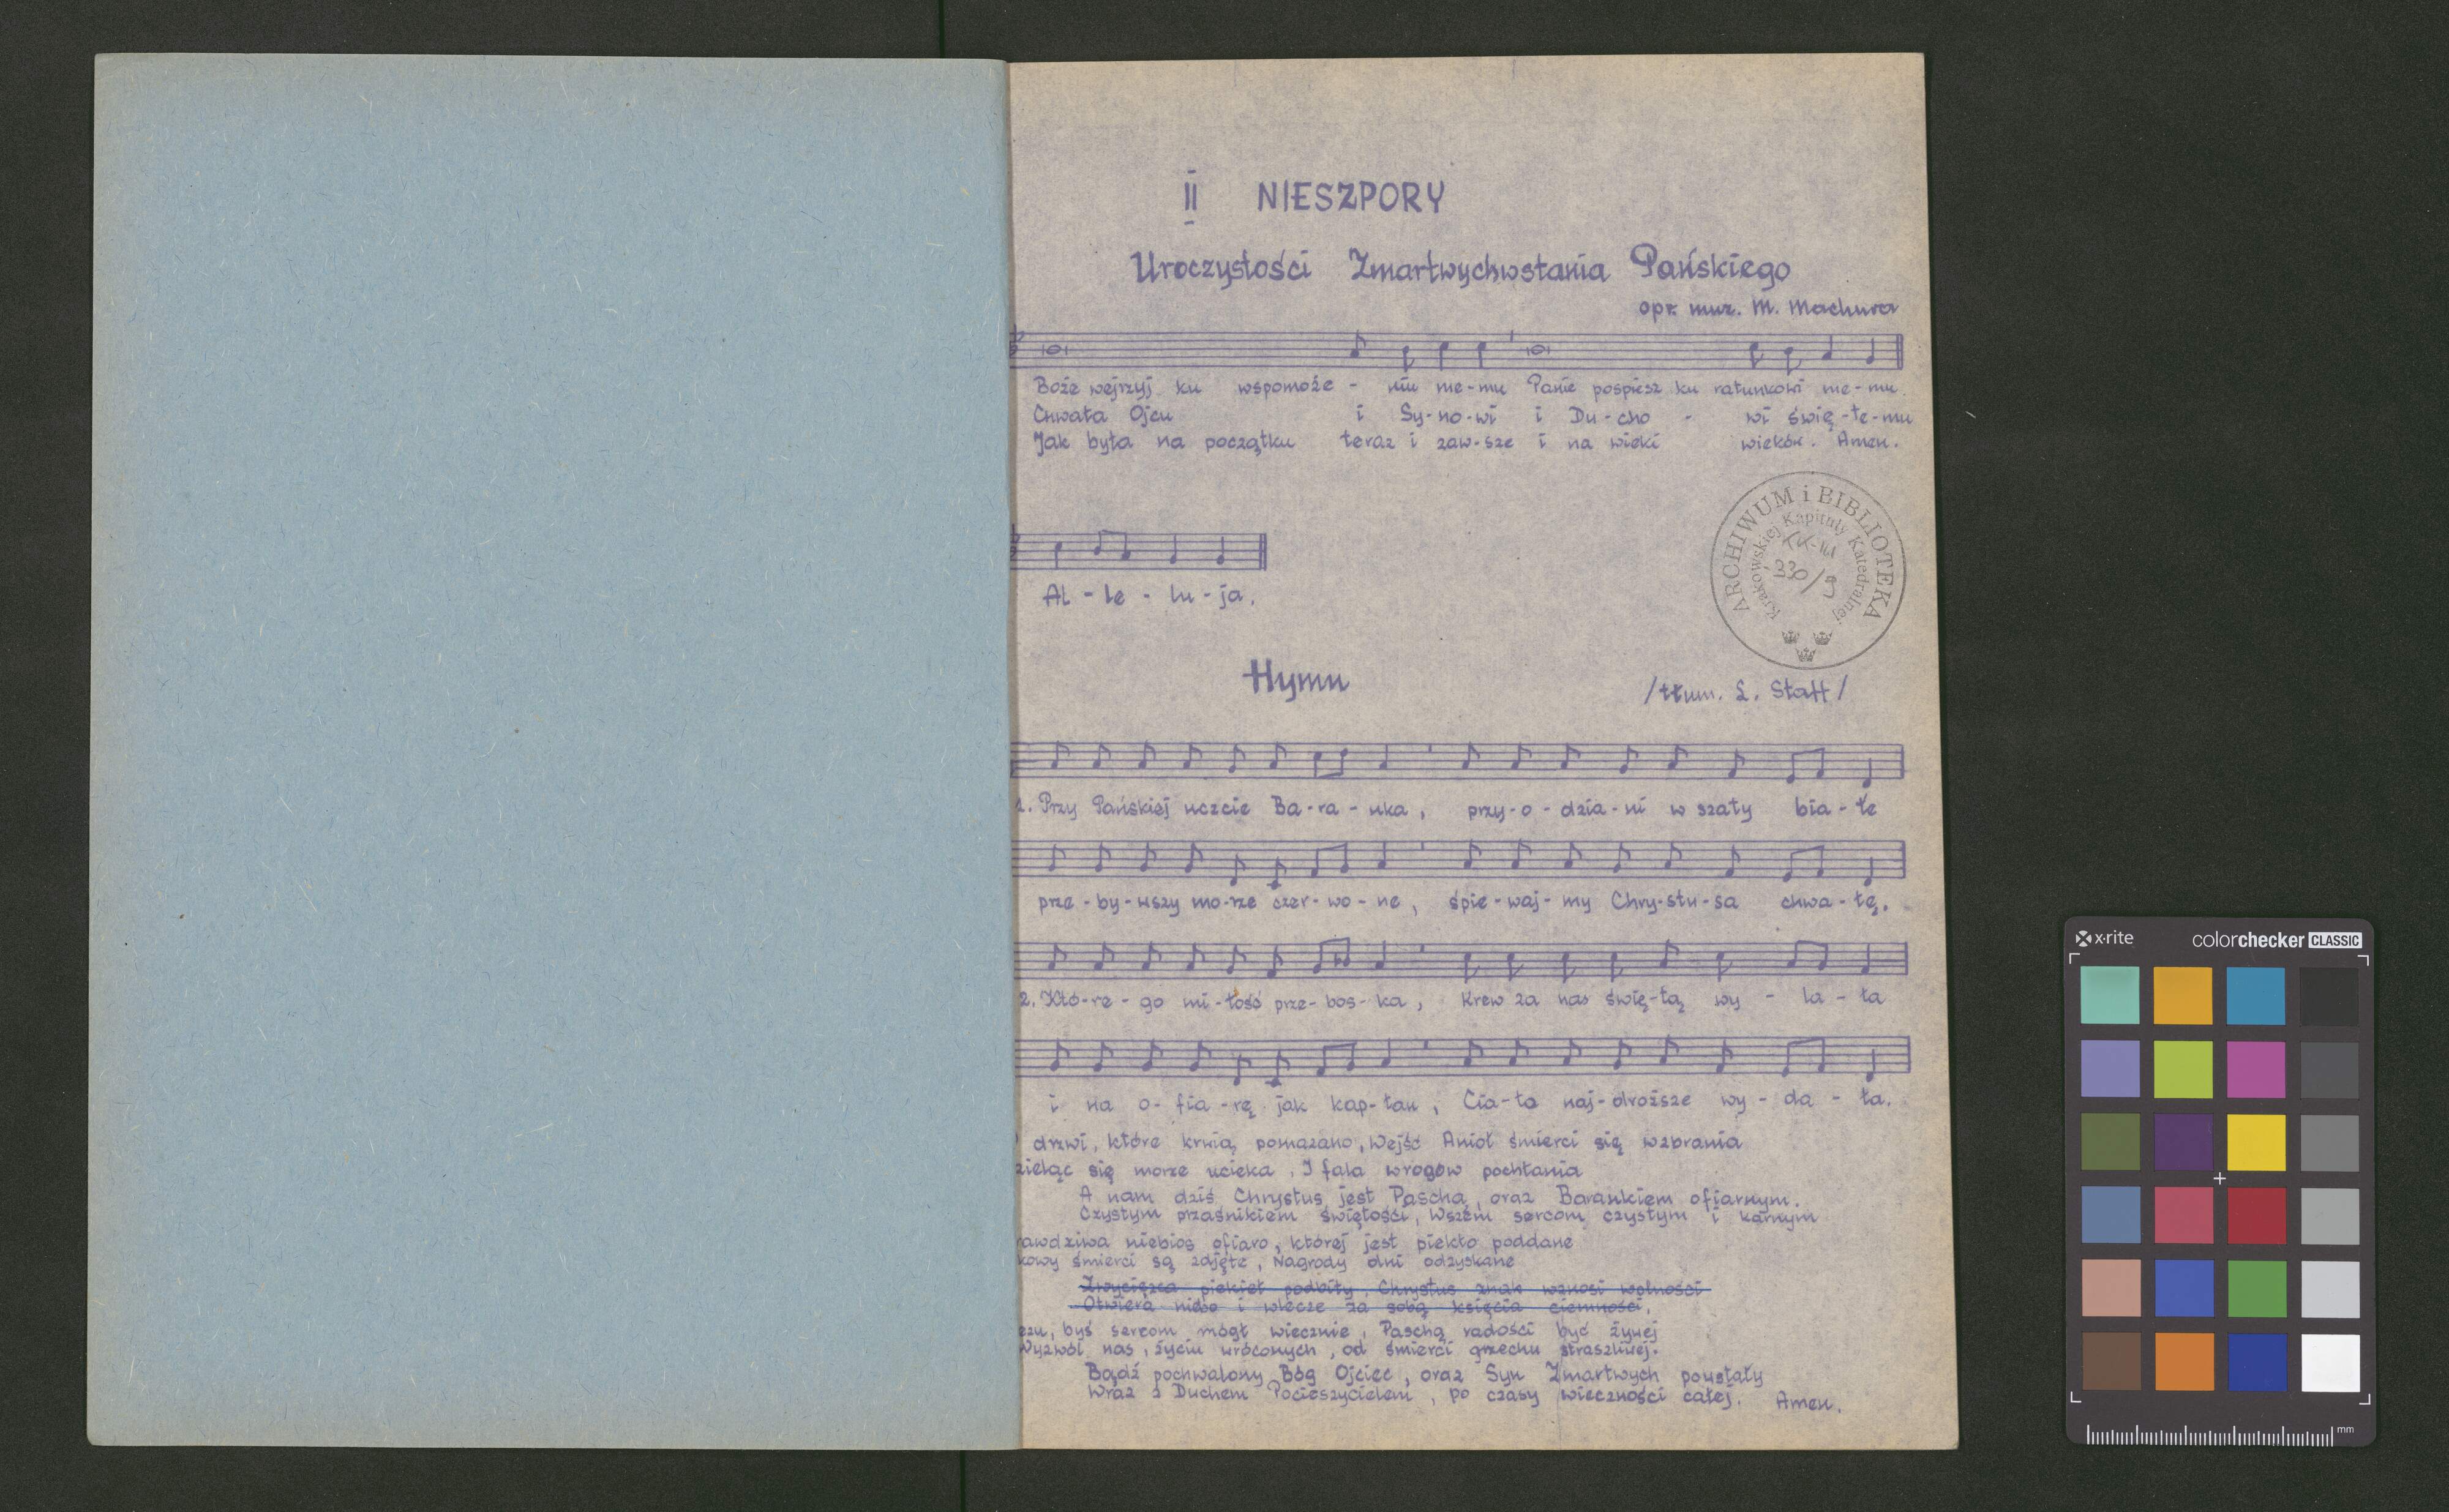 II NIESZPORY
Uroczystości Zmartwychwstania Pańskiego
opr. muz. M. Machura
Boże wejrzyj ku wspomoże - niu me-mu Panie pospiesz ku ratunkowi me-mu.
Chwała Ojcu i Sy-no-wi i Du-cho - wi świę-te-mu
Jak była na początku teraz i zaw-sze i na wieki wieków. Amen.
Al - le - lu - ja.
ARCHIWUM i BIBLIOTEKA
Krakowskiej Kapituły Katedralnej
330/9
Hymn /tłum. L. Staff/
1. Przy Pańskiej uczcie Ba-ra-nka, przy-o-dzia-ni w szaty bia-łe
prze-by-wszy mo-rze czer-wo-ne, śpie-waj-my Chry-stu-sa chwa-łę.
2. Któ-re-go mi-łość prze-bos-ka, Krew za nas świę-tą wy - la - ła
i na o-fia-rę jak kap-łan, Cia-ło naj-droższe wy-da-ła.
drzwi, które krwią pomazano, Wejść Anioł śmierci się wzbrania
zieląc się morze ucieka, I fala wrogów pochłania
A nam dziś Chrystus jest Paschą, oraz Barankiem ofiarnym.
Czystym przaśnikiem świętości, Wszem sercom czystym i karnym
rawdziwa niebios ofiaro, której jest piekło poddane
kowy śmierci są zdjęte, Nagrody dni odzyskane
Zwycięzca piekieł podbity, Chrystus znak wznosi wolności
Otwiera niebo i wlecze za sobą księcia ciemności.
ezu, byś sercom mógł wiecznie, Paschą radości być żywej
Wyzwól nas, życiu wróconych, od śmierci grzechu straszliwej.
Bądź pochwalony Bóg Ojciec, oraz Syn Zmartwych powstały
Wraz z Duchem Pocieszycielem, po czasy wieczności całej. Amen.
x-rite colorchecker CLASSIC
mm